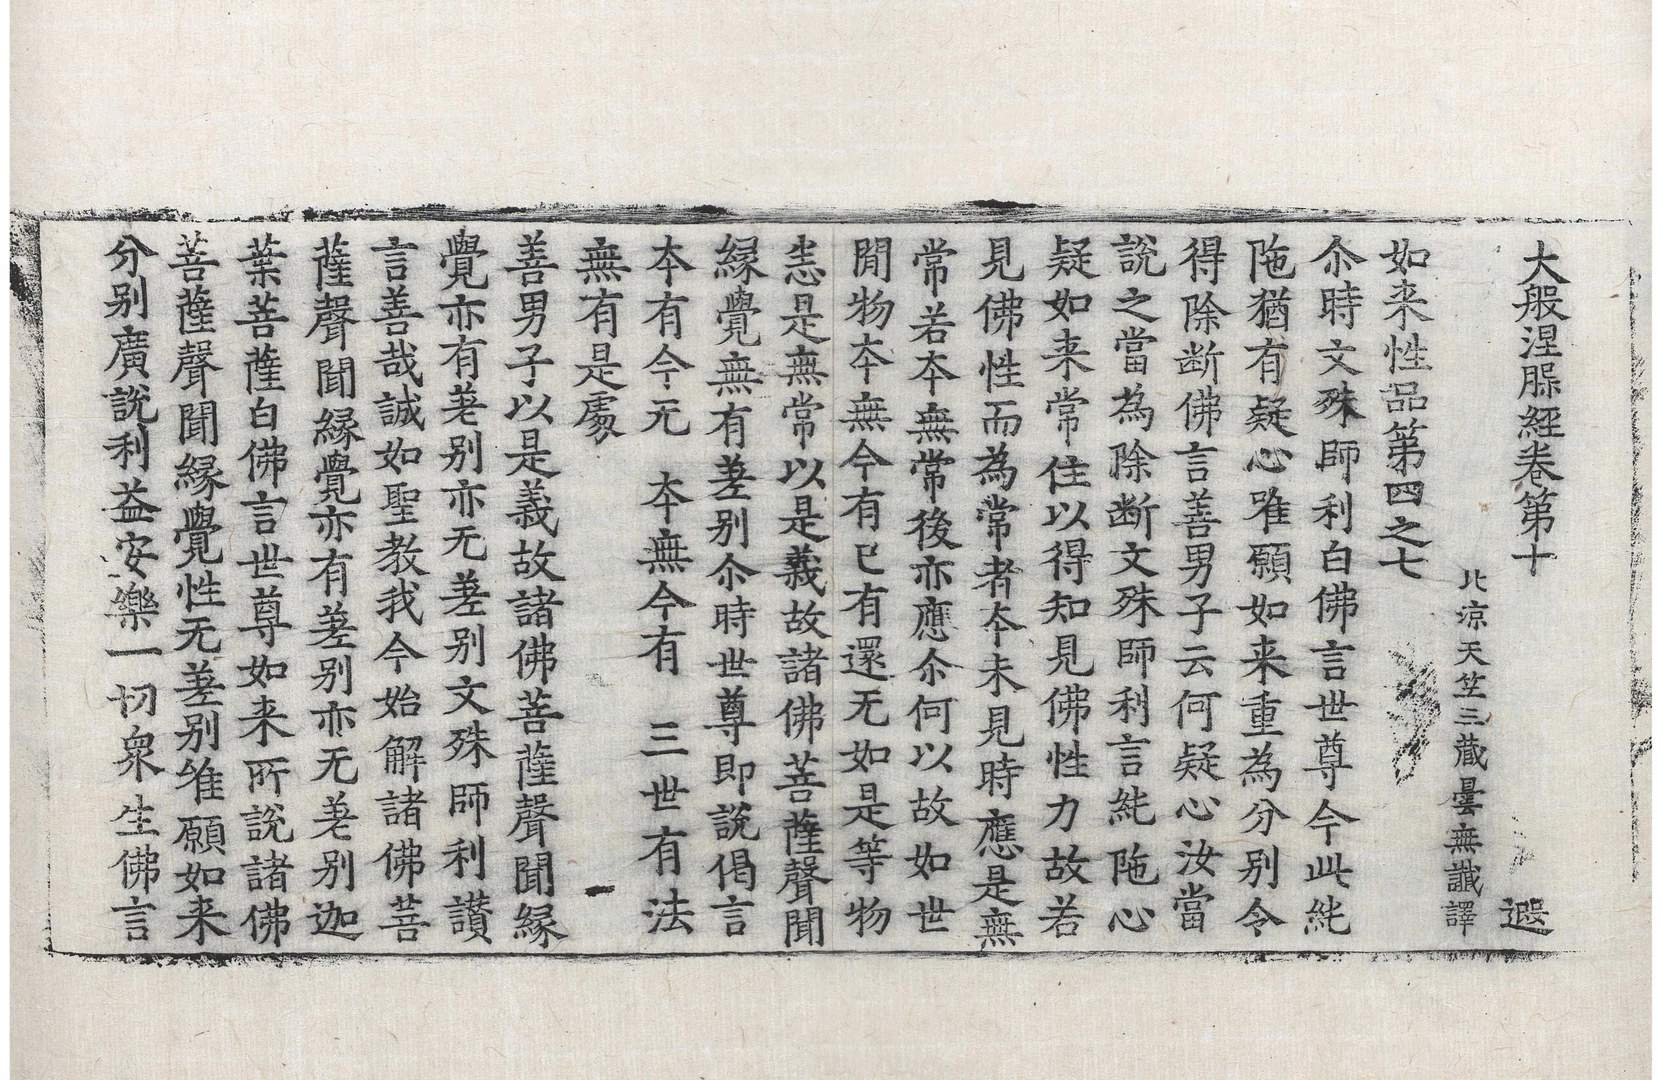 大般涅槃經卷第十 遐
北涼天竺三藏曇無讖譯
如来性品第四之七
尒時文殊師利白佛言世尊今此純
陁猶有疑心唯願如来重為分别令
得除断佛言善男子云何疑心汝當
說之當為除断文殊師利言純陁心
疑如来常住以得知見佛性力故若
見佛性而為常者夲未見時應是無
常若夲無常後亦應尒何以故如世
閒物夲無今有已有還无如是等物
悉是無常以是義故諸佛菩薩聲聞
縁覺無有差别尒時世尊即說偈言
夲有今元 夲無今有 三世有法
無有是處
善男子以是義故諸佛菩薩聲聞縁
覺亦有差别亦无差别文殊師利讃
言善哉誠如聖教我今始解諸佛菩
薩聲聞縁覺亦有差别亦无差别迦
葉菩薩白佛言世尊如来所說諸佛
菩薩聲聞縁覺性无差别唯願如来
分别廣說利益安樂一切衆生佛言